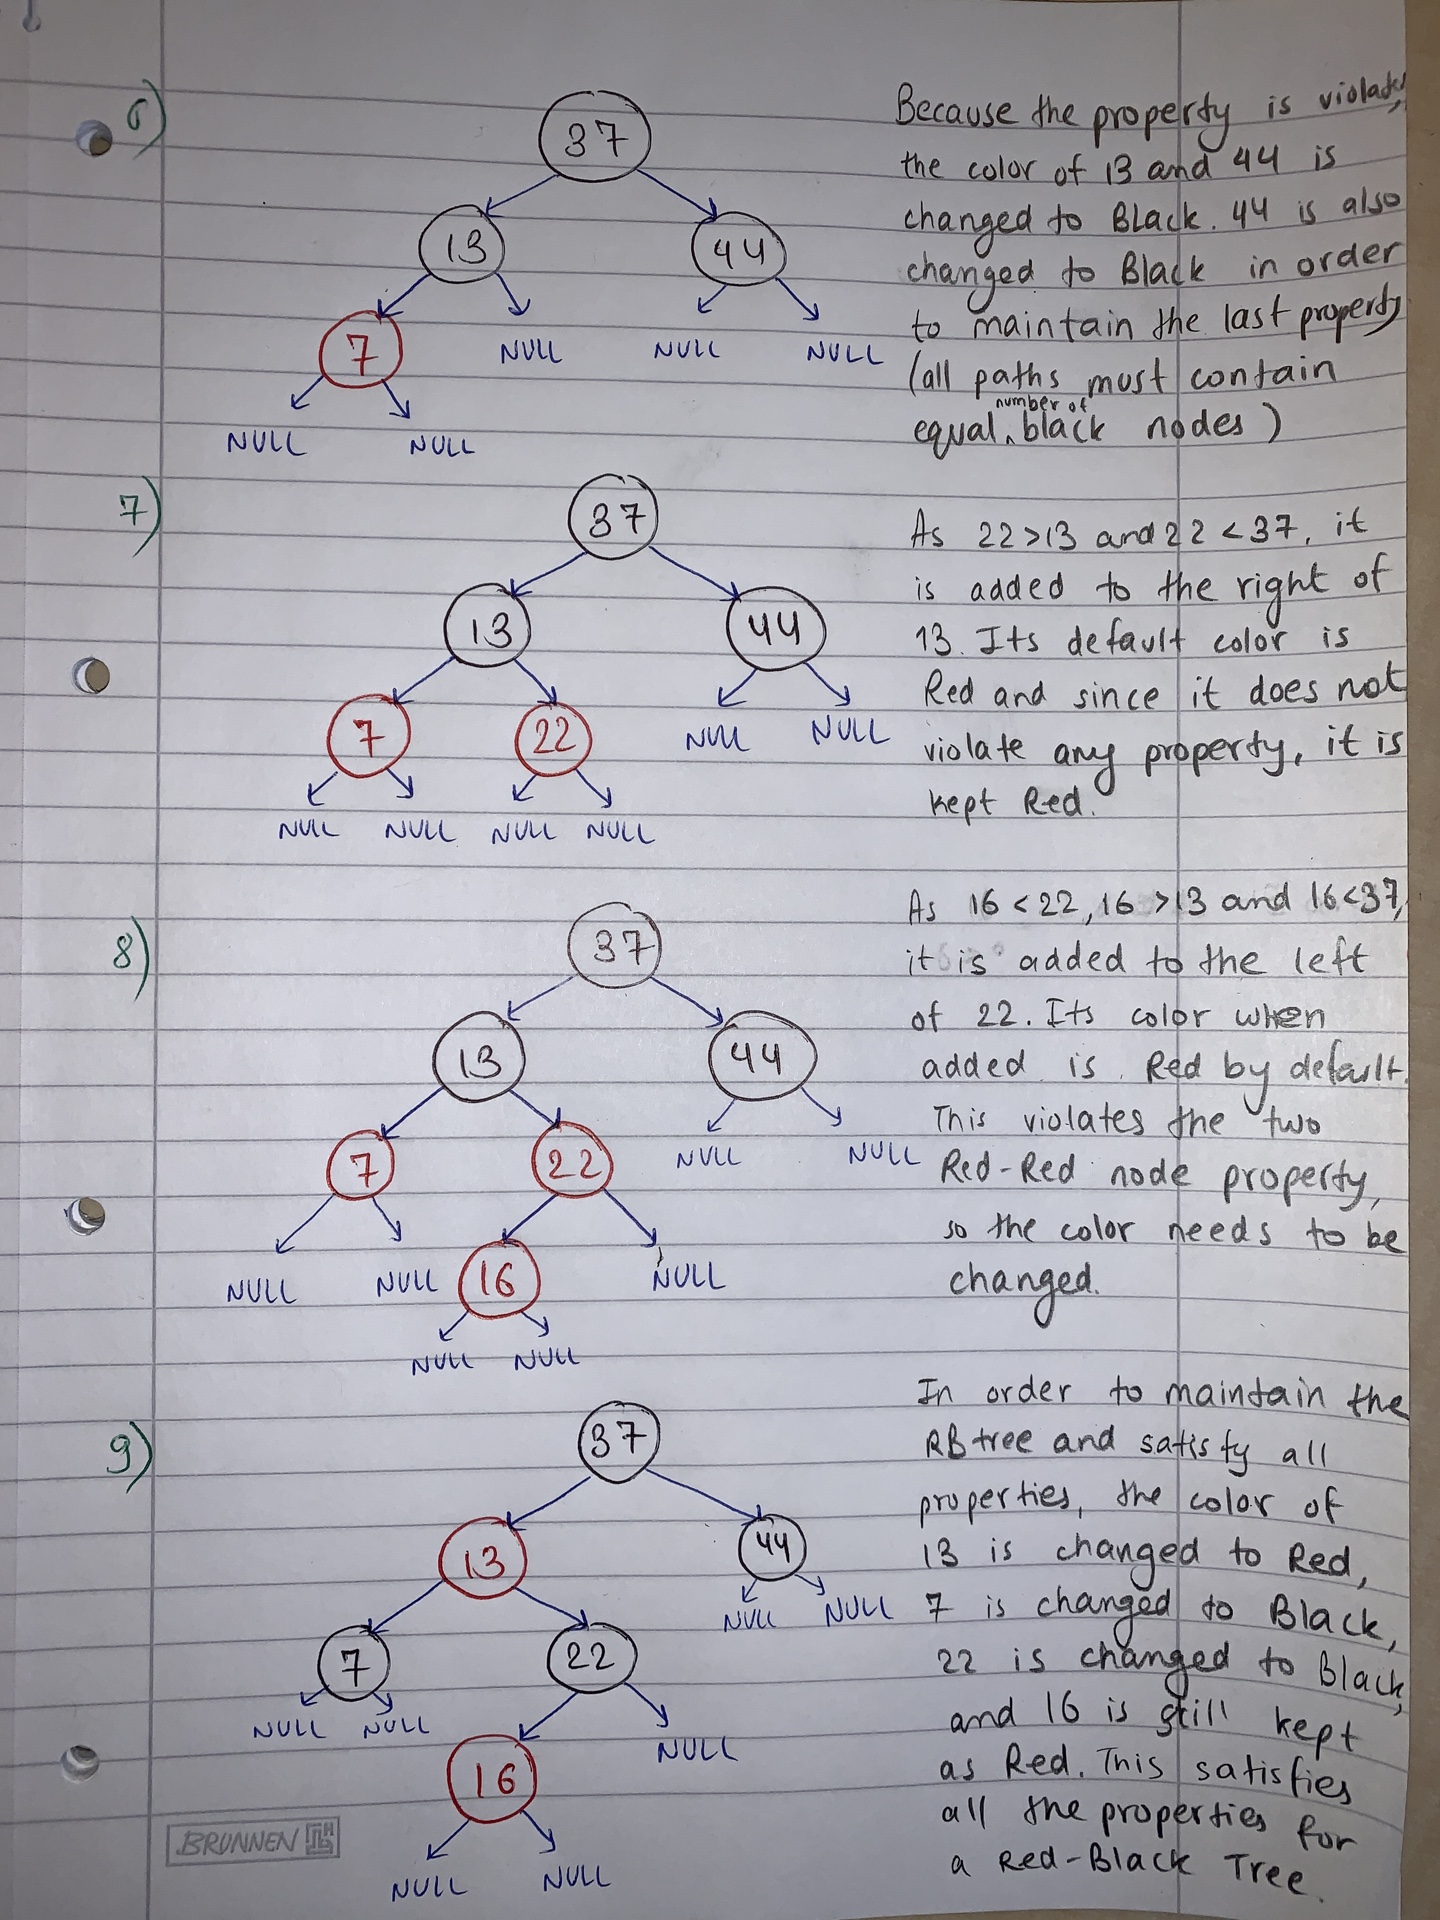 6)
37
13
44
7
NULL
NULL
NULL
NULL
NULL
Because the property is
the color of 13 and 44 is
changed to Black. 44 is also
changed to Black in order
to maintain the last property
(all paths must contain
number of
equal black nodes)
7)
37
13
44
7
22
NULL
NULL
NULL
NULL
NULL
NULL
As 22>13 and 22 <37, it
is added to the right of
13. Its default color is
Red and since it does not
violate any property, it is
kept Red.
8)
37
13
44
7
22
NULL
NULL
NULL
NULL
16
NULL
NULL
NULL
As 16 <22, 16 >13 and 16<37,
it is added to the left
of 22. Its color when
added is Red by default.
This violates the two
Red-Red node property,
so the color needs to be
changed.
9)
37
13
44
7
22
NULL
NULL
NULL
NULL
16
NULL
NULL
NULL
In order to maintain the
RB tree and satisfy all
properties, the color of
13 is changed to Red,
7 is changed to Black,
22 is changed to Black,
and 16 is still kept
as Red. This satisfies
all the properties for
a Red-Black Tree.
BRUNNEN